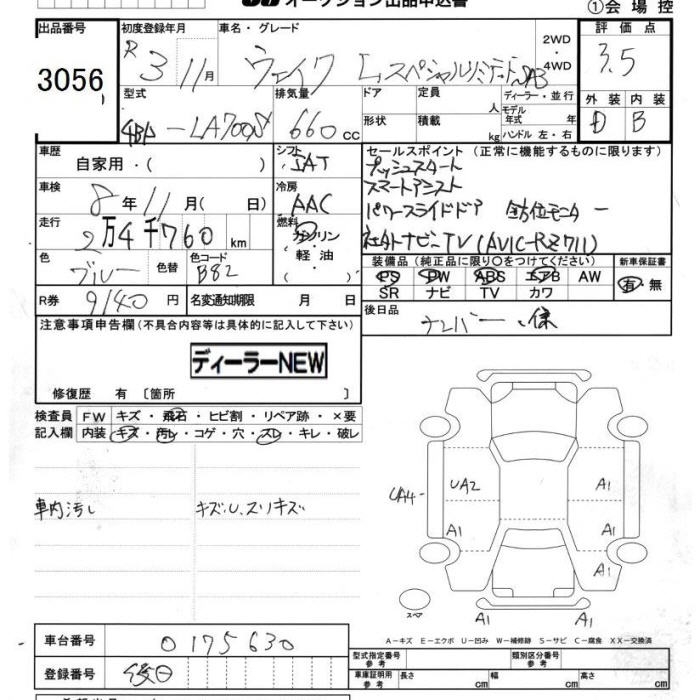 オークション出品申込書
①会場控
出品番号
3056
初度登録年月
R 3 11月
車名・グレード
ウェイク Lスペシャルリミテッド SAⅢ
2WD
・
4WD
評価点
3.5
外装 内装
D B
型式
4BA-LA700S
排気量
660 cc
ドア
形状
定員
人
積載
kg
ディーラー・並行
モデル
年式 年
ハンドル 左・右
車歴
自家用・( )
シフト
AT
セールスポイント (正常に機能するものに限ります)
プッシュスタート
スマートアシスト
パワースライドドア 全方位モニター
社外ナビ・TV (AVIC-RZ711)
車検
8年11月( 日)
冷房
AAC
走行
2万4千760 km
燃料
ガソリン
(軽油)
色
ブルー
色替
色コード
B82
装備品 (純正品に限り○をつけてください)
PS PW ABS エアB AW
SR ナビ TV カワ
新車保証書
有・無
R券
9140 円
名変通知期限 月 日
後日品
ナンバー、保
注意事項申告欄 (不具合内容等は具体的に記入して下さい)
ディーラーNEW
修復歴 有 〔箇所 〕
検査員
記入欄
FW キズ・飛石・ヒビ割・リペア跡・×要
内装 キズ・汚レ・コゲ・穴・スレ・キレ・破レ
車内汚し
キズ、U、スリキズ
UA4
UA2
A1
A1
A1
A1
A1
A1
スペア
A-キズ E-エクボ U-凹み W-補修跡 S-サビ C-腐食 XX-交換済
車台番号
0175630
登録番号
後日
型式指定番号
参考
類別区分番号
参考
車庫証明用
参考
長さ cm
幅 cm
高さ cm